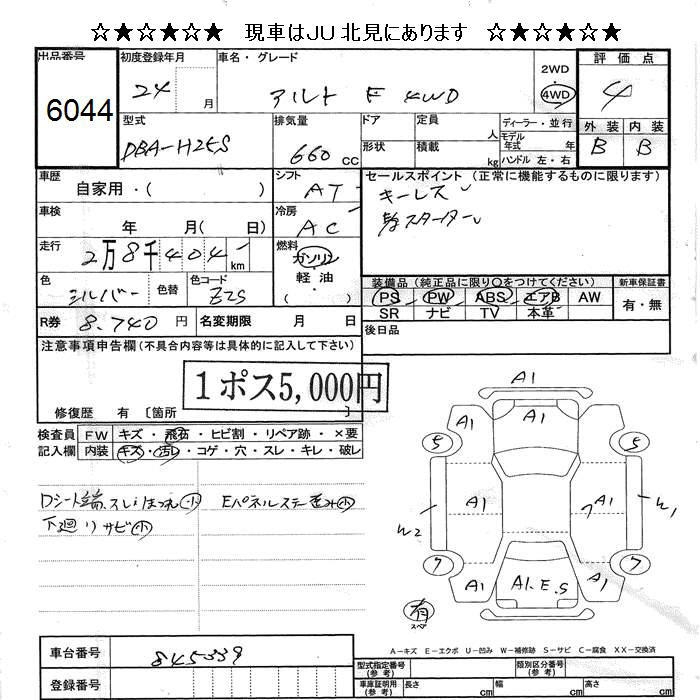 ☆★☆★☆★ 現車はＪＵ北見にあります ☆★☆★☆★
出品番号
6044
初度登録年月
24 月
車名・グレード
アルト F 4WD
2WD
・
4WD
評価点
4
外装 内装
B B
型式
DBA-H25S
排気量
660 cc
ドア
形状
定員 人
積載 kg
ディーラー・並行
モデル年式 年
ハンドル 左・右
車歴
自家用・( )
シフト
AT
車検
年 月( 日)
冷房
AC
走行
2万8千404 km
燃料
ガソリン
軽油
( )
色
シルバー
色替
色コード
Z2S
R券 8.740円
名変期限 月 日
セールスポイント（正常に機能するものに限ります）
キーレス
スターター
装備品（純正品に限り○をつけてください）
PS PW ABS エアB AW
SR ナビ TV 本革
新車保証書
有・無
後日品
注意事項申告欄(不具合内容等は具体的に記入して下さい)
1ポス5,000円
修復歴 有〔箇所 〕
検査員
記入欄
FW キズ・飛石・ヒビ割・リペア跡・×要
内装 キズ・汚レ・コゲ・穴・スレ・キレ・破レ
Dシート端スレほつれ小
Eパネルステー歪み小
下廻りサビ小
A1
A1 A1 A1
5 5
A1 A1 A1
W2 W1
7 7
A1 A1.E.S A1
有
スペア
A-キズ E-エクボ U-凹み W-補修跡 S-サビ C-腐食 XX-交換済
車台番号 845339
登録番号
型式指定番号(参考)
類別区分番号(参考)
車庫証明用(参考) 長さ cm 幅 cm 高さ cm